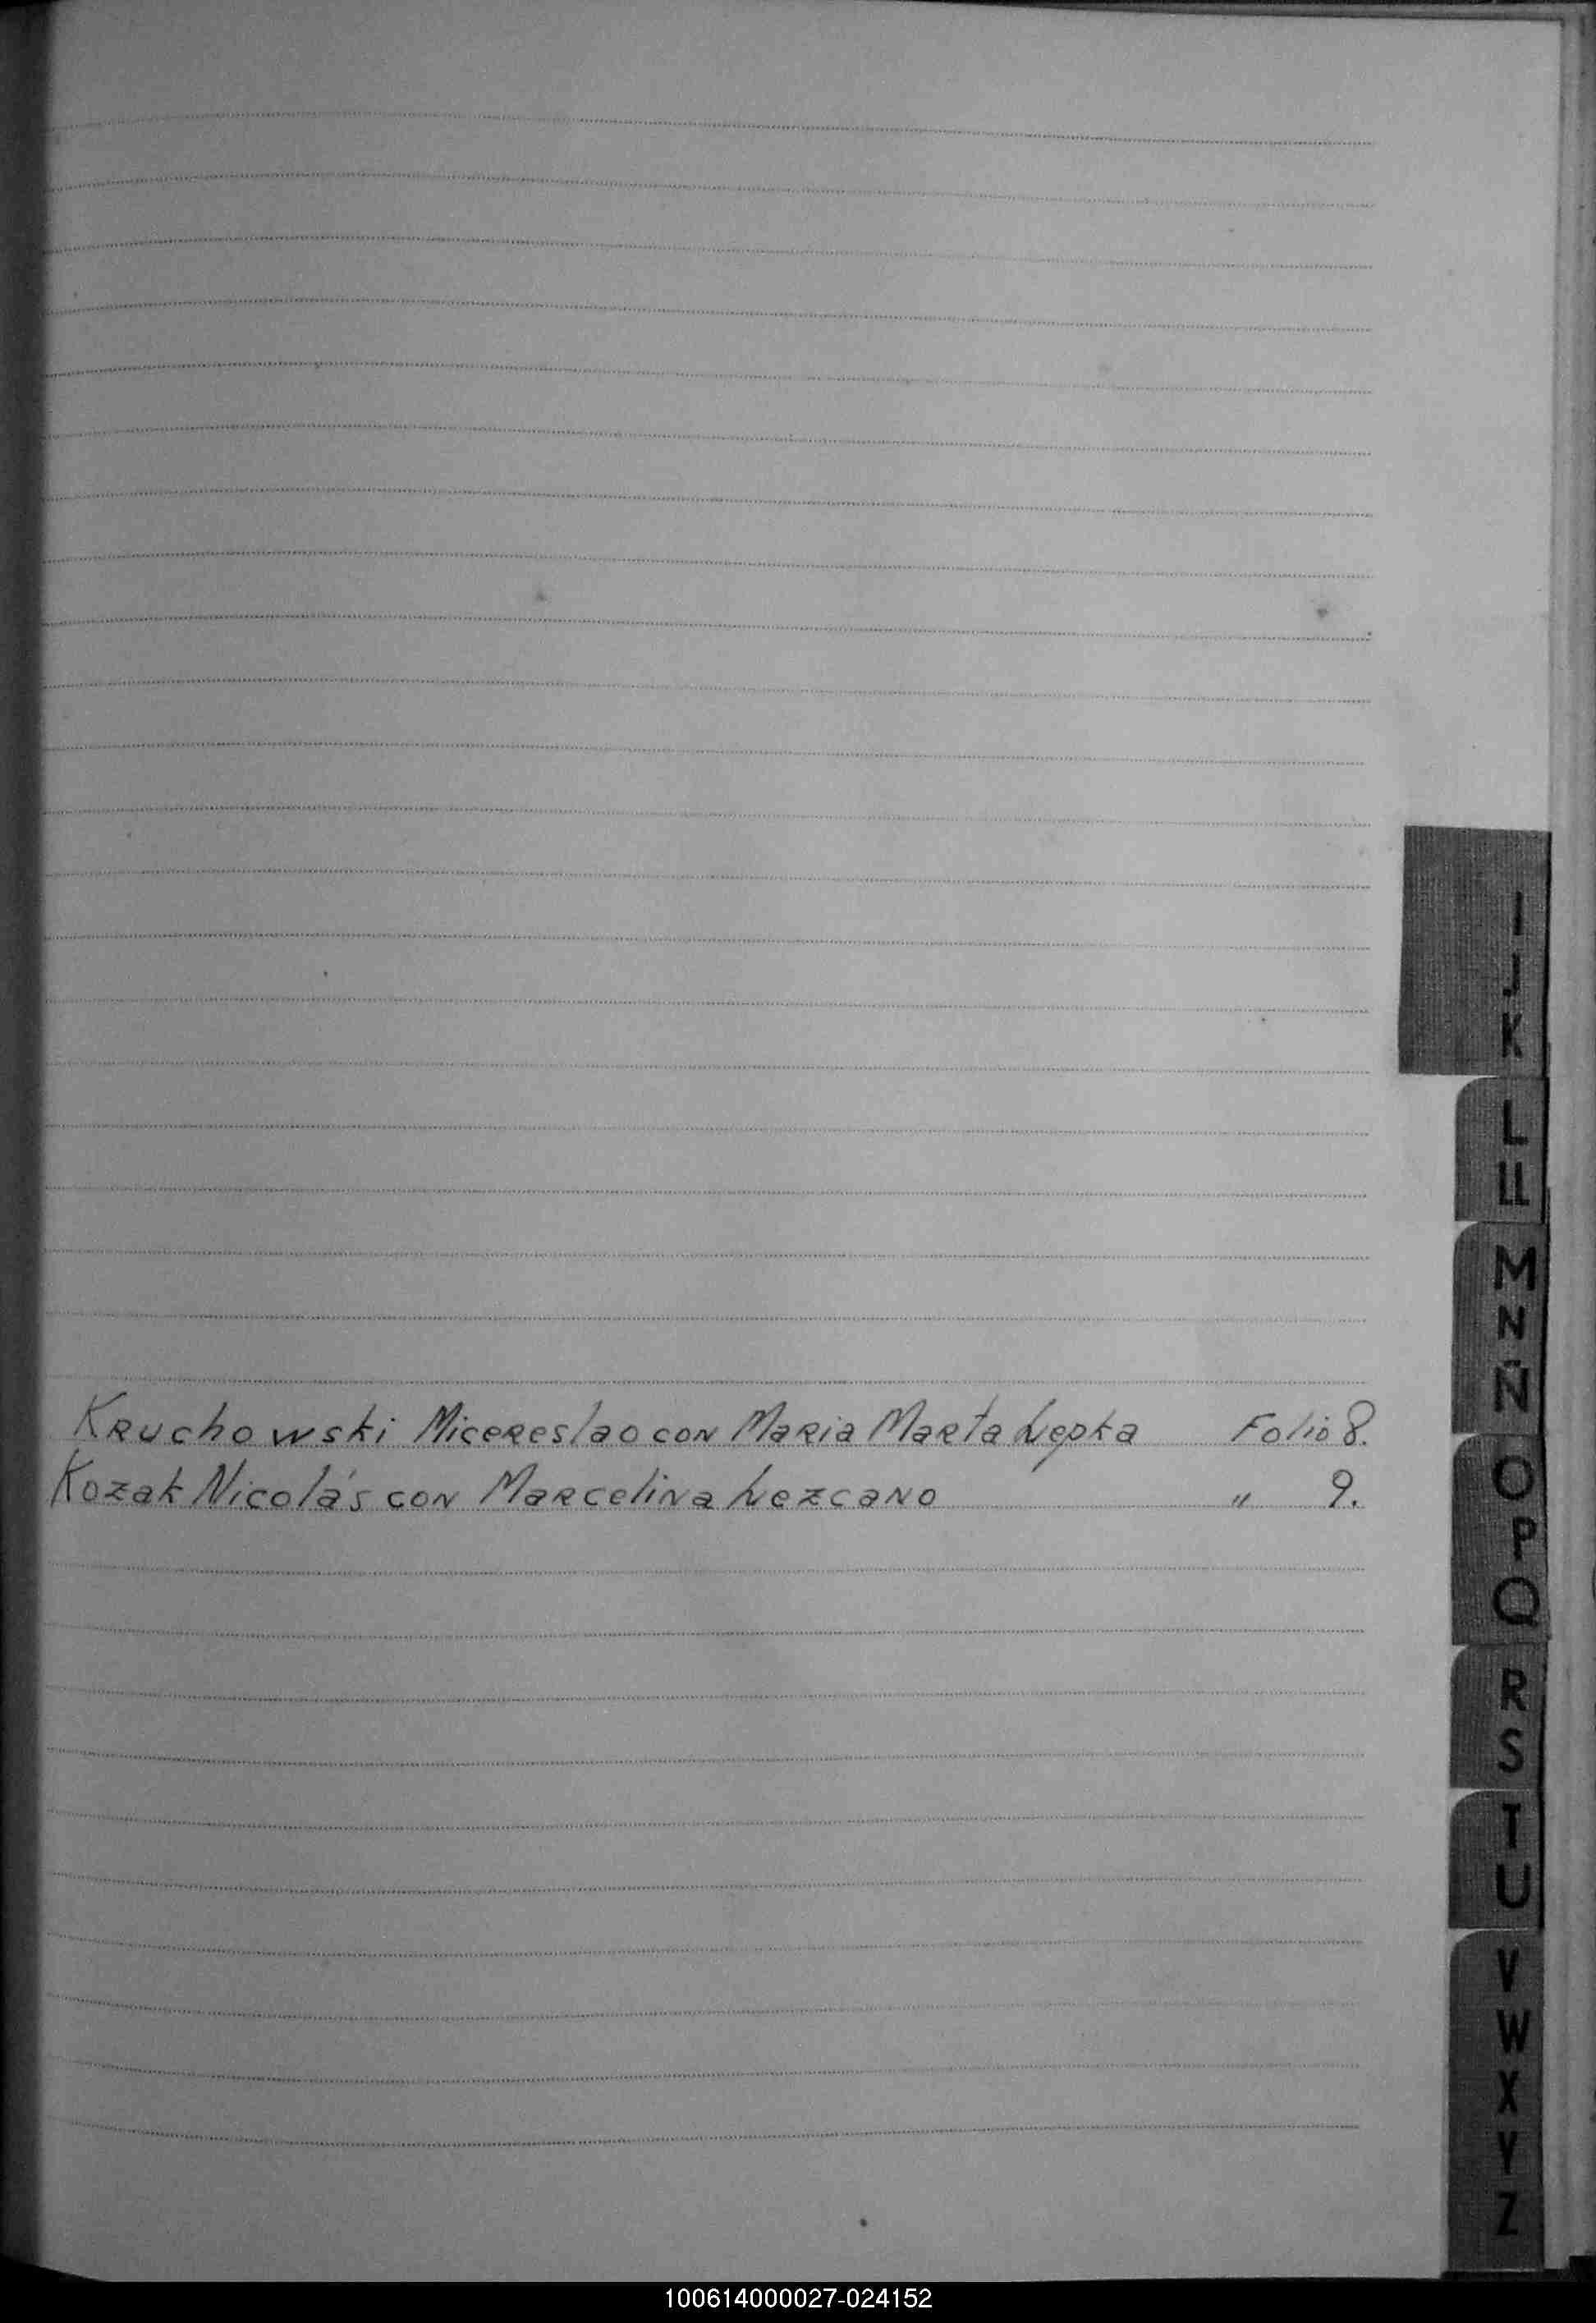 I
J
K
L
LL
M
N
Ñ
O
P
Q
R
S
T
U
V
W
X
Y
Z
Kruchowski Micereslao con Maria Marta Lepka Folio 8.
Kozak Nicolás con Marcelina Lezcano " 9.
100614000027-024152